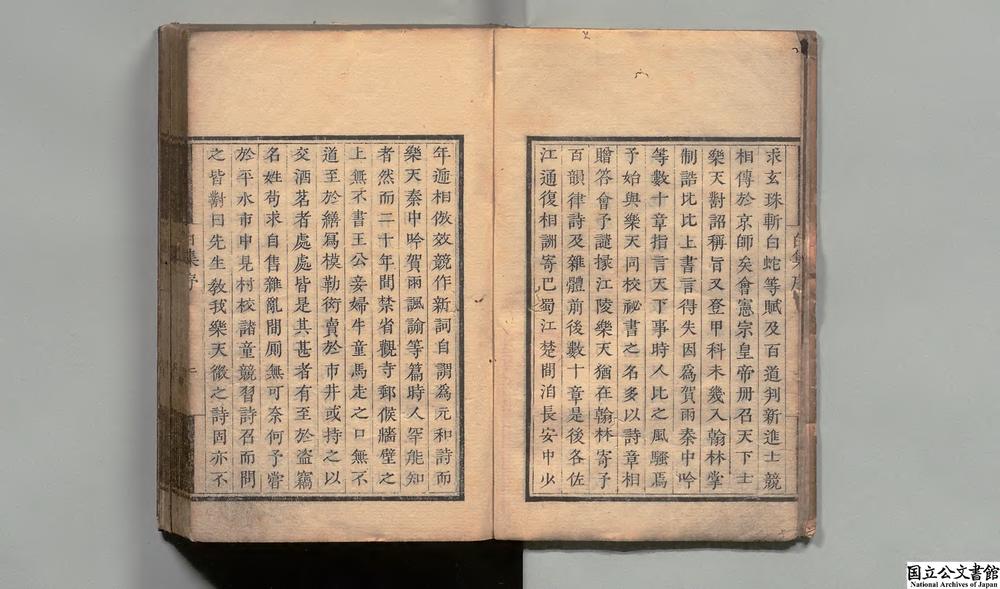 求玄珠斬白蛇等賦及百道判新進士競
相傳於京師矣會憲宗皇帝册召天下士
樂天對詔稱旨又登甲科未幾入翰林掌
制誥比比上書言得失因爲賀雨秦中吟
等數十章指言天下事時人比之風騷焉
予始與樂天同校祕書之名多以詩章相
贈答會予譴掾江陵樂天猶在翰林寄予
百韻律詩及雜體前後數十章是後各佐
江通復相詶寄巴蜀江楚間洎長安中少
年遞相倣效競作新詞自謂爲元和詩而
樂天秦中吟賀雨諷諭等篇時人罕能知
者然而二十年間禁省觀寺郵候牆壁之
上無不書王公妾婦牛童馬走之口無不
道至於繕寫模勒衒賣於市井或持之以
交酒茗者處處皆是其甚者有至於盜竊
名姓苟求自售雜亂間厠無可奈何予嘗
於平水市中見村校諸童競習詩召而問
之皆對曰先生教我樂天微之詩固亦不
白集序
国立公文書館
National Archives of Japan